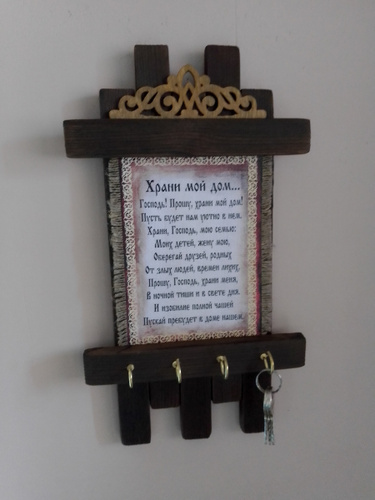 Храни мой дом...
Господь! Прошу, храни мой дом!
Пусть будет нам уютно в нем.
Храни, Господь, мою семью:
Моих детей, жену мою,
Оберегай друзей, родных
От злых людей, времен лихих.
Прошу, Господь, храни меня,
В ночной тиши и в свете дня.
И изобилие полной чашей
Пускай пребудет в доме нашем.